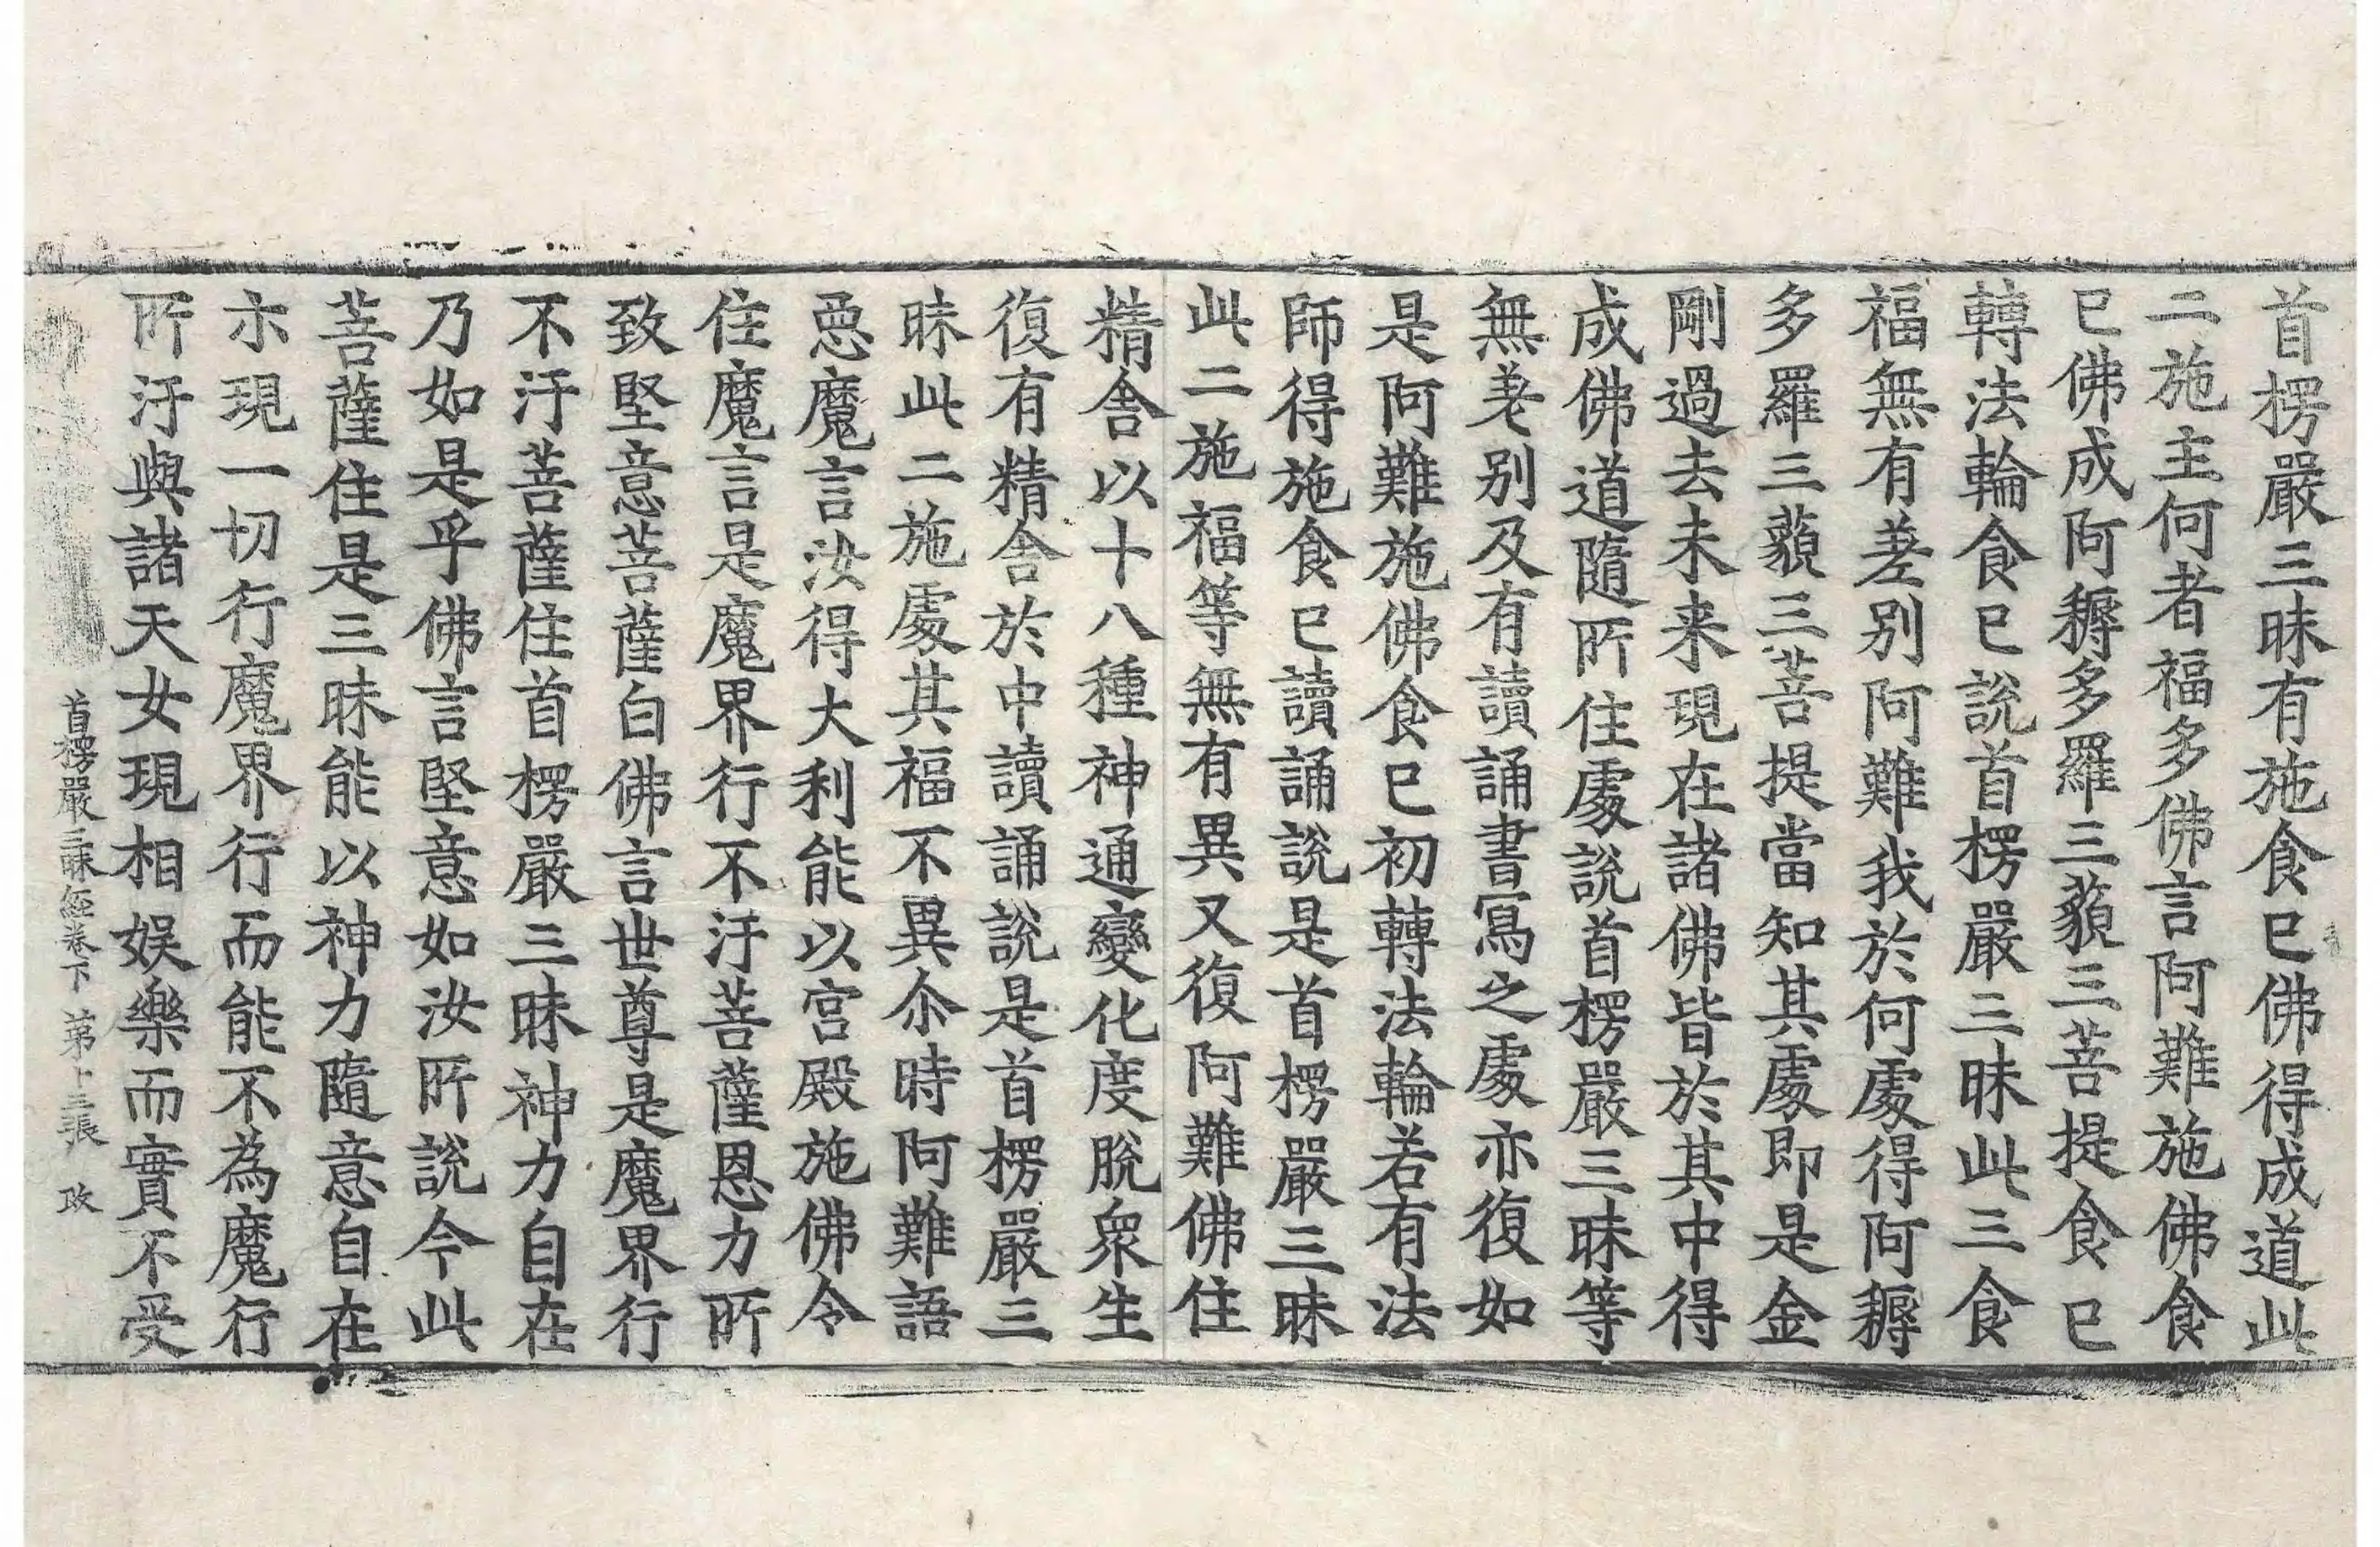 首楞嚴三昧有施食已佛得成道此
二施主何者福多佛言阿難施佛食
已佛成阿耨多羅三藐三菩提食已
轉法輪食已說首楞嚴三昧此三食
福無有差別阿難我於何處得阿耨
多羅三藐三菩提當知其處即是金
剛過去未来現在諸佛皆於其中得
成佛道隨所住處說首楞嚴三昧等
無差别及有讀誦書寫之處亦復如
是阿難施佛食已初轉法輪若有法
師得施食已讀誦說是首楞嚴三昧
此二施福等無有異又復阿難佛住
精舍以十八種神通變化度脫衆生
復有精舍於中讀誦說是首楞嚴三
昧此二施處其福不異尒時阿難語
惡魔言汝得大利能以宫殿施佛令
住魔言是魔界行不汙菩薩恩力所
致堅意菩薩白佛言世尊是魔界行
不汙菩薩住首楞嚴三昧神力自在
乃如是乎佛言堅意如汝所說今此
菩薩住是三昧能以神力隨意自在
示現一切行魔界行而能不為魔行
所汙與諸天女現相娛樂而實不受
首楞嚴三昧經卷下 第十三張 政